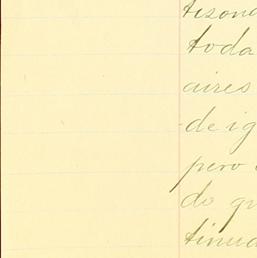 tison
toda
aires
de ig
pero
do gr
tinua